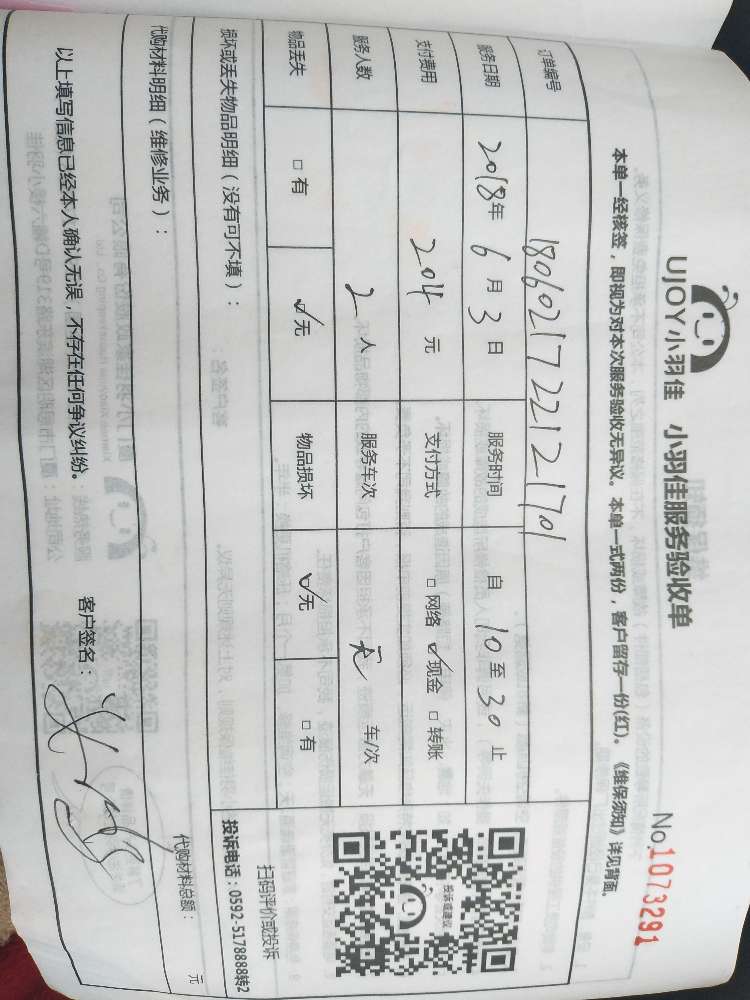 UJOY小羽佳 小羽佳服务验收单
No.1073291
本单一经核签，即视为对本次服务验收无异议。本单一式两份，客户留存一份(红)。《维保须知》详见背面。
订单编号 1806021722121701
服务日期 2018年6月3日 服务时间 自10至30止
支付费用 204元 支付方式 □网络 ☑现金 □转账
服务人数 2人 服务车次 无 车/次
物品丢失 □有 ☑无 物品损坏 ☑无 □有
损坏或丢失物品明细（没有可不填）：
投诉或建议
扫码评价或投诉
投诉电话：0592-5178888转2
代购材料明细（维修业务）：
代购材料总额： 元
以上填写信息已经本人确认无误，不存在任何争议纠纷。 客户签名：